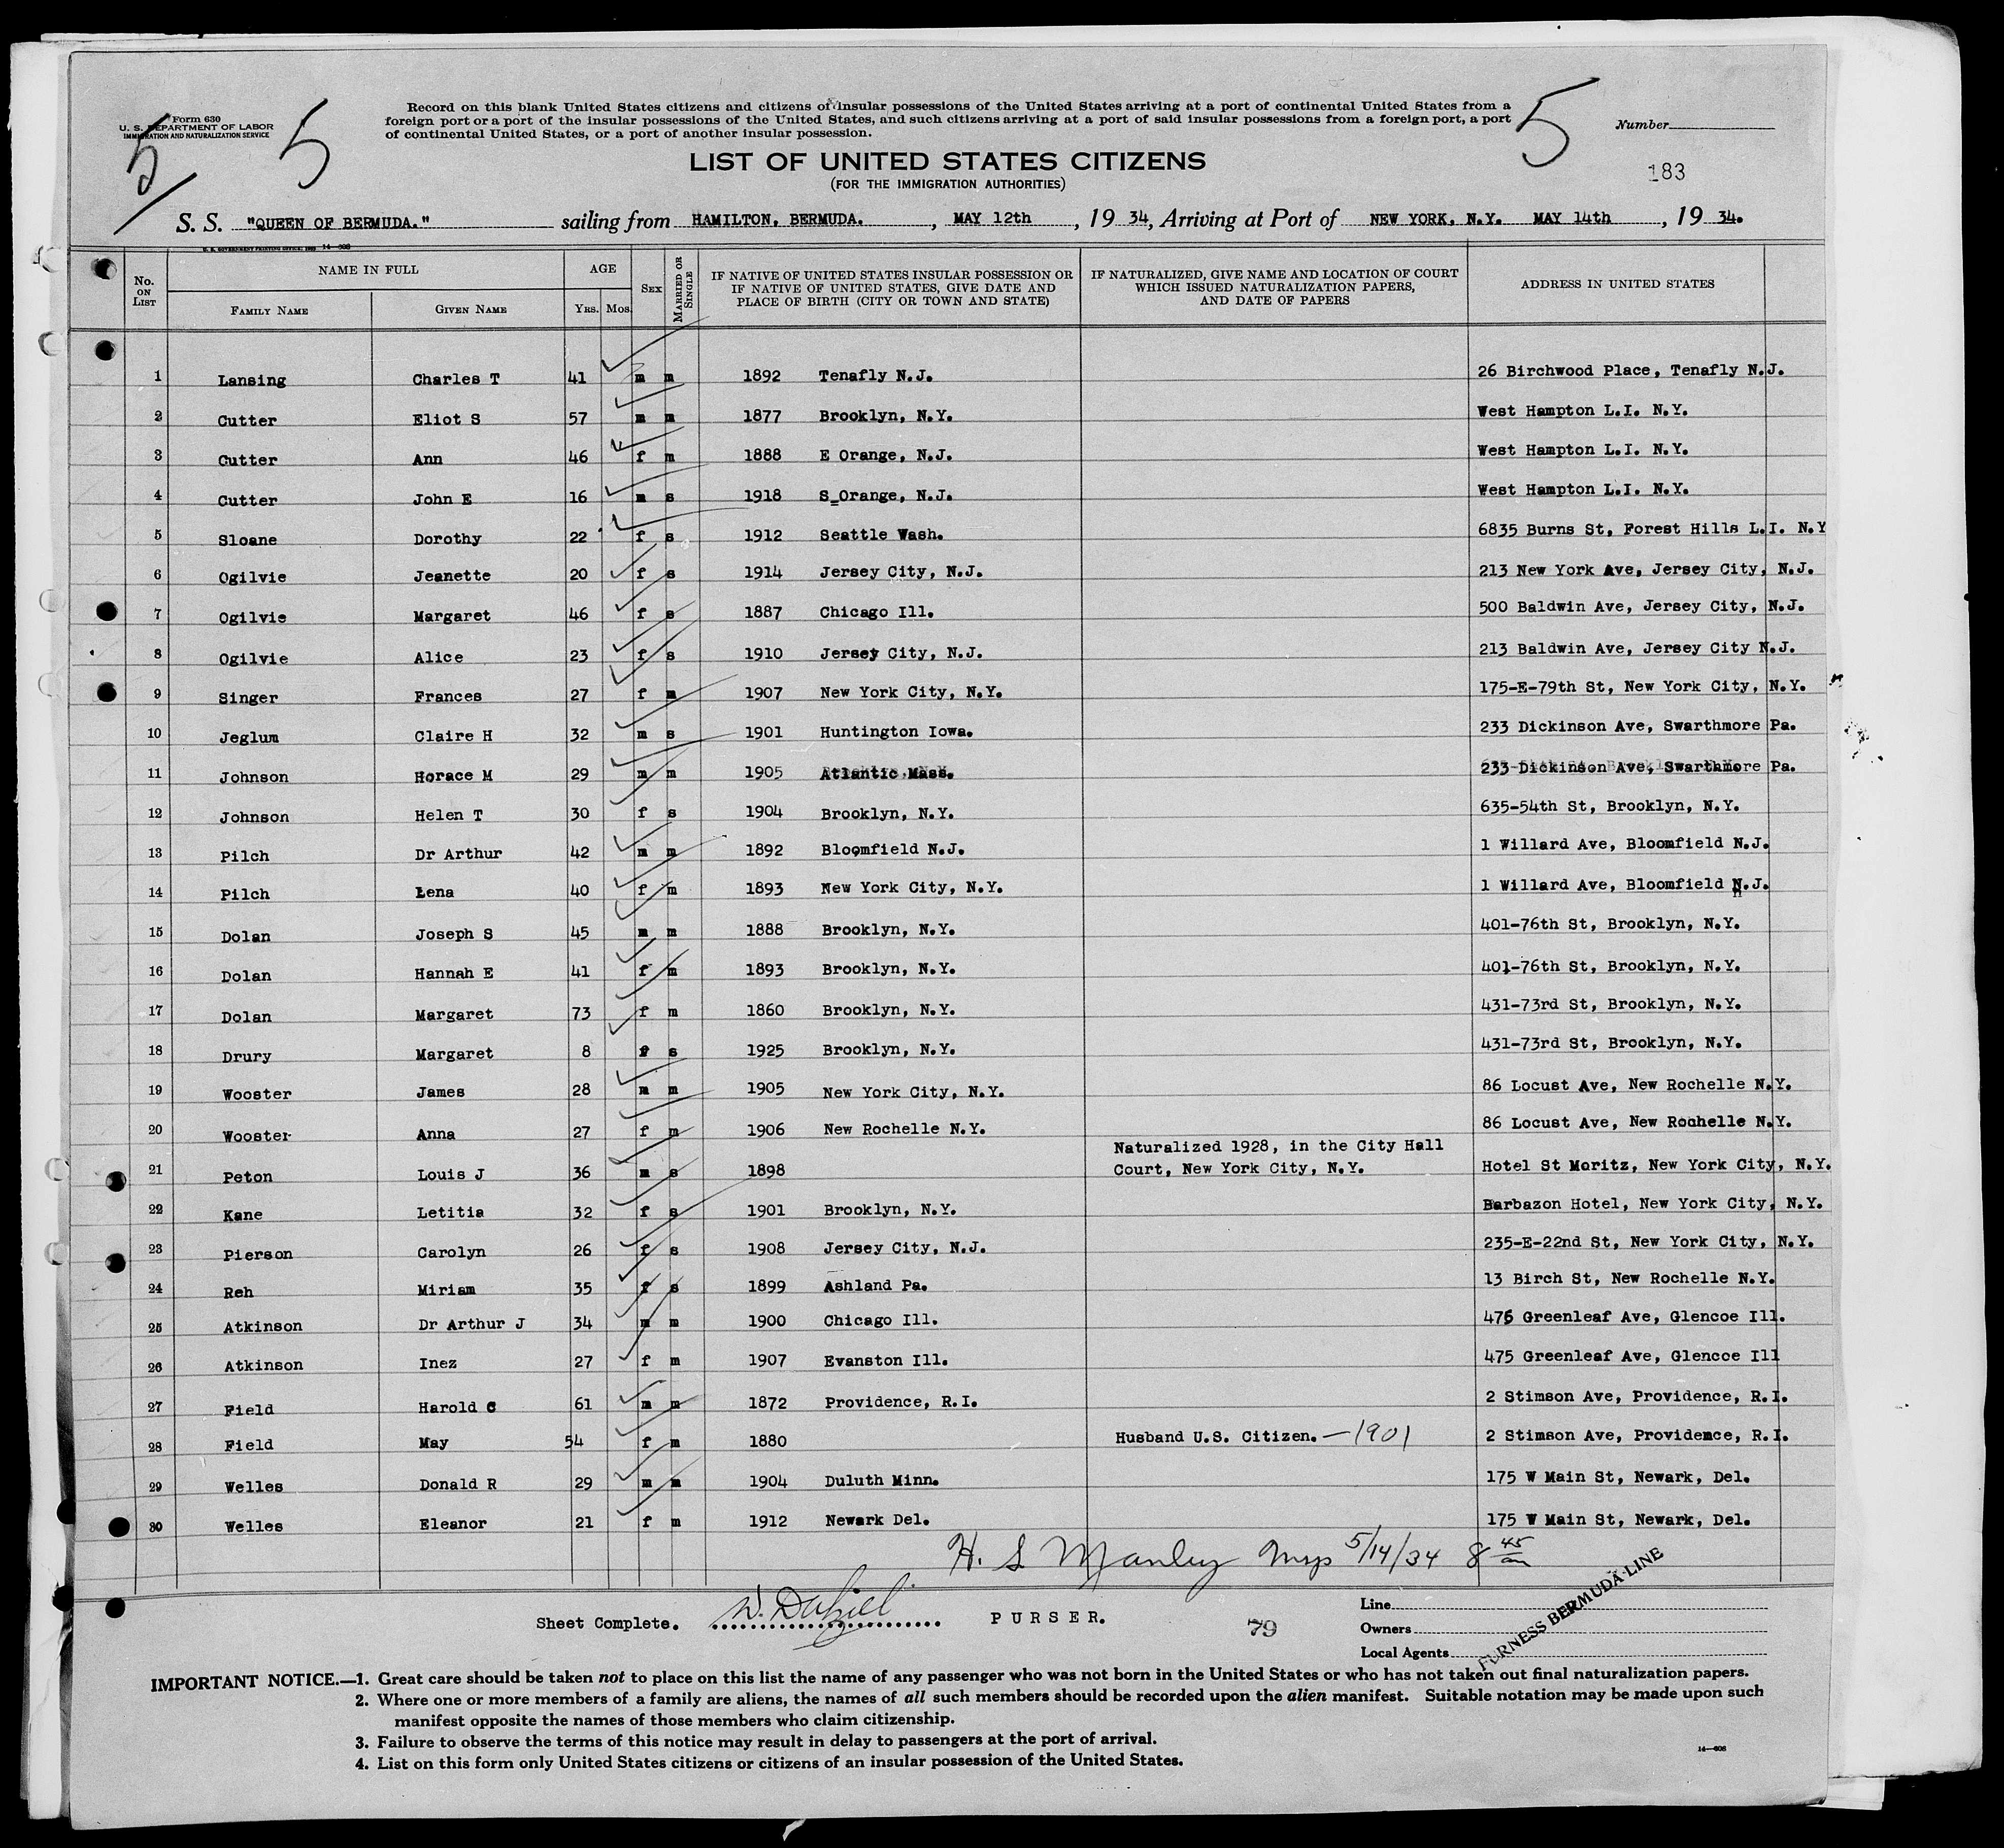 Form 630
U. S. DEPARTMENT OF LABOR
IMMIGRATION AND NATURALIZATION SERVICE
5 5
Record on this blank United States citizens and citizens of insular possessions of the United States arriving at a port of continental United States from a
foreign port or a port of the insular possessions of the United States, and such citizens arriving at a port of said insular possessions from a foreign port, a port
of continental United States, or a port of another insular possession.
5
Number
LIST OF UNITED STATES CITIZENS
(FOR THE IMMIGRATION AUTHORITIES)
183
S. S. "QUEEN OF BERMUDA." sailing from HAMILTON, BERMUDA. , MAY 12th , 19 34, Arriving at Port of NEW YORK, N.Y. MAY 14th , 19 34.
U. S. GOVERNMENT PRINTING OFFICE: 14—608
No. ON LIST NAME IN FULL FAMILY NAME GIVEN NAME AGE YRS. MOS. SEX MARRIED OR SINGLE IF NATIVE OF UNITED STATES INSULAR POSSESSION OR IF NATIVE OF UNITED STATES, GIVE DATE AND PLACE OF BIRTH (CITY OR TOWN AND STATE) IF NATURALIZED, GIVE NAME AND LOCATION OF COURT WHICH ISSUED NATURALIZATION PAPERS, AND DATE OF PAPERS ADDRESS IN UNITED STATES
1 Lansing Charles T 41 m m 1892 Tenafly N.J. 26 Birchwood Place, Tenafly N.J.
2 Cutter Eliot S 57 m m 1877 Brooklyn, N.Y. West Hampton L.I. N.Y.
3 Cutter Ann 46 f m 1888 E Orange, N.J. West Hampton L.I. N.Y.
4 Cutter John E 16 m s 1918 S_Orange, N.J. West Hampton L.I. N.Y.
5 Sloane Dorothy 22 f s 1912 Seattle Wash. 6835 Burns St, Forest Hills L.I. N.Y
6 Ogilvie Jeanette 20 f s 1914 Jersey City, N.J. 213 New York Ave, Jersey City, N.J.
7 Ogilvie Margaret 46 f s 1887 Chicago Ill. 500 Baldwin Ave, Jersey City, N.J.
8 Ogilvie Alice 23 f s 1910 Jersey City, N.J. 213 Baldwin Ave, Jersey City N.J.
9 Singer Frances 27 f m 1907 New York City, N.Y. 175-E-79th St, New York City, N.Y.
10 Jeglum Claire H 32 m s 1901 Huntington Iowa. 233 Dickinson Ave, Swarthmore Pa.
11 Johnson Horace M 29 m m 1905 Atlantic Mass. 233 Dickinson Ave, Swarthmore Pa.
12 Johnson Helen T 30 f s 1904 Brooklyn, N.Y. 635-54th St, Brooklyn, N.Y.
13 Pilch Dr Arthur 42 m m 1892 Bloomfield N.J. 1 Willard Ave, Bloomfield N.J.
14 Pilch Lena 40 f m 1893 New York City, N.Y. 1 Willard Ave, Bloomfield N.J.
15 Dolan Joseph S 45 m m 1888 Brooklyn, N.Y. 401-76th St, Brooklyn, N.Y.
16 Dolan Hannah E 41 f m 1893 Brooklyn, N.Y. 401-76th St, Brooklyn, N.Y.
17 Dolan Margaret 73 f m 1860 Brooklyn, N.Y. 431-73rd St, Brooklyn, N.Y.
18 Drury Margaret 8 f s 1925 Brooklyn, N.Y. 431-73rd St, Brooklyn, N.Y.
19 Wooster James 28 m m 1905 New York City, N.Y. 86 Locust Ave, New Rochelle N.Y.
20 Wooster Anna 27 f m 1906 New Rochelle N.Y. 86 Locust Ave, New Rochelle N.Y.
Naturalized 1928, in the City Hall
21 Peton Louis J 36 m s 1898 Court, New York City, N.Y. Hotel St Moritz, New York City, N.Y.
22 Kane Letitia 32 f s 1901 Brooklyn, N.Y. Barbazon Hotel, New York City, N.Y.
23 Pierson Carolyn 26 f s 1908 Jersey City, N.J. 235-E-22nd St, New York City, N.Y.
24 Reh Miriam 35 f s 1899 Ashland Pa. 13 Birch St, New Rochelle N.Y.
25 Atkinson Dr Arthur J 34 m m 1900 Chicago Ill. 475 Greenleaf Ave, Glencoe Ill.
26 Atkinson Inez 27 f m 1907 Evanston Ill. 475 Greenleaf Ave, Glencoe Ill
27 Field Harold C 61 m m 1872 Providence, R.I. 2 Stimson Ave, Providence, R.I.
28 Field May 54 f m 1880 Husband U.S. Citizen. —1901 2 Stimson Ave, Providence, R.I.
29 Welles Donald R 29 m m 1904 Duluth Minn. 175 W Main St, Newark, Del.
30 Welles Eleanor 21 f m 1912 Newark Del. 175 W Main St, Newark, Del.
H. S Manley 5/14/34 8 45 am
Sheet Complete. W. PURSER. 79
Line
Owners
Local Agents
FURNESS BERMUDA LINE
IMPORTANT NOTICE.—1. Great care should be taken not to place on this list the name of any passenger who was not born in the United States or who has not taken out final naturalization papers.
2. Where one or more members of a family are aliens, the names of all such members should be recorded upon the alien manifest. Suitable notation may be made upon such
manifest opposite the names of those members who claim citizenship.
3. Failure to observe the terms of this notice may result in delay to passengers at the port of arrival.
4. List on this form only United States citizens or citizens of an insular possession of the United States.
14—608